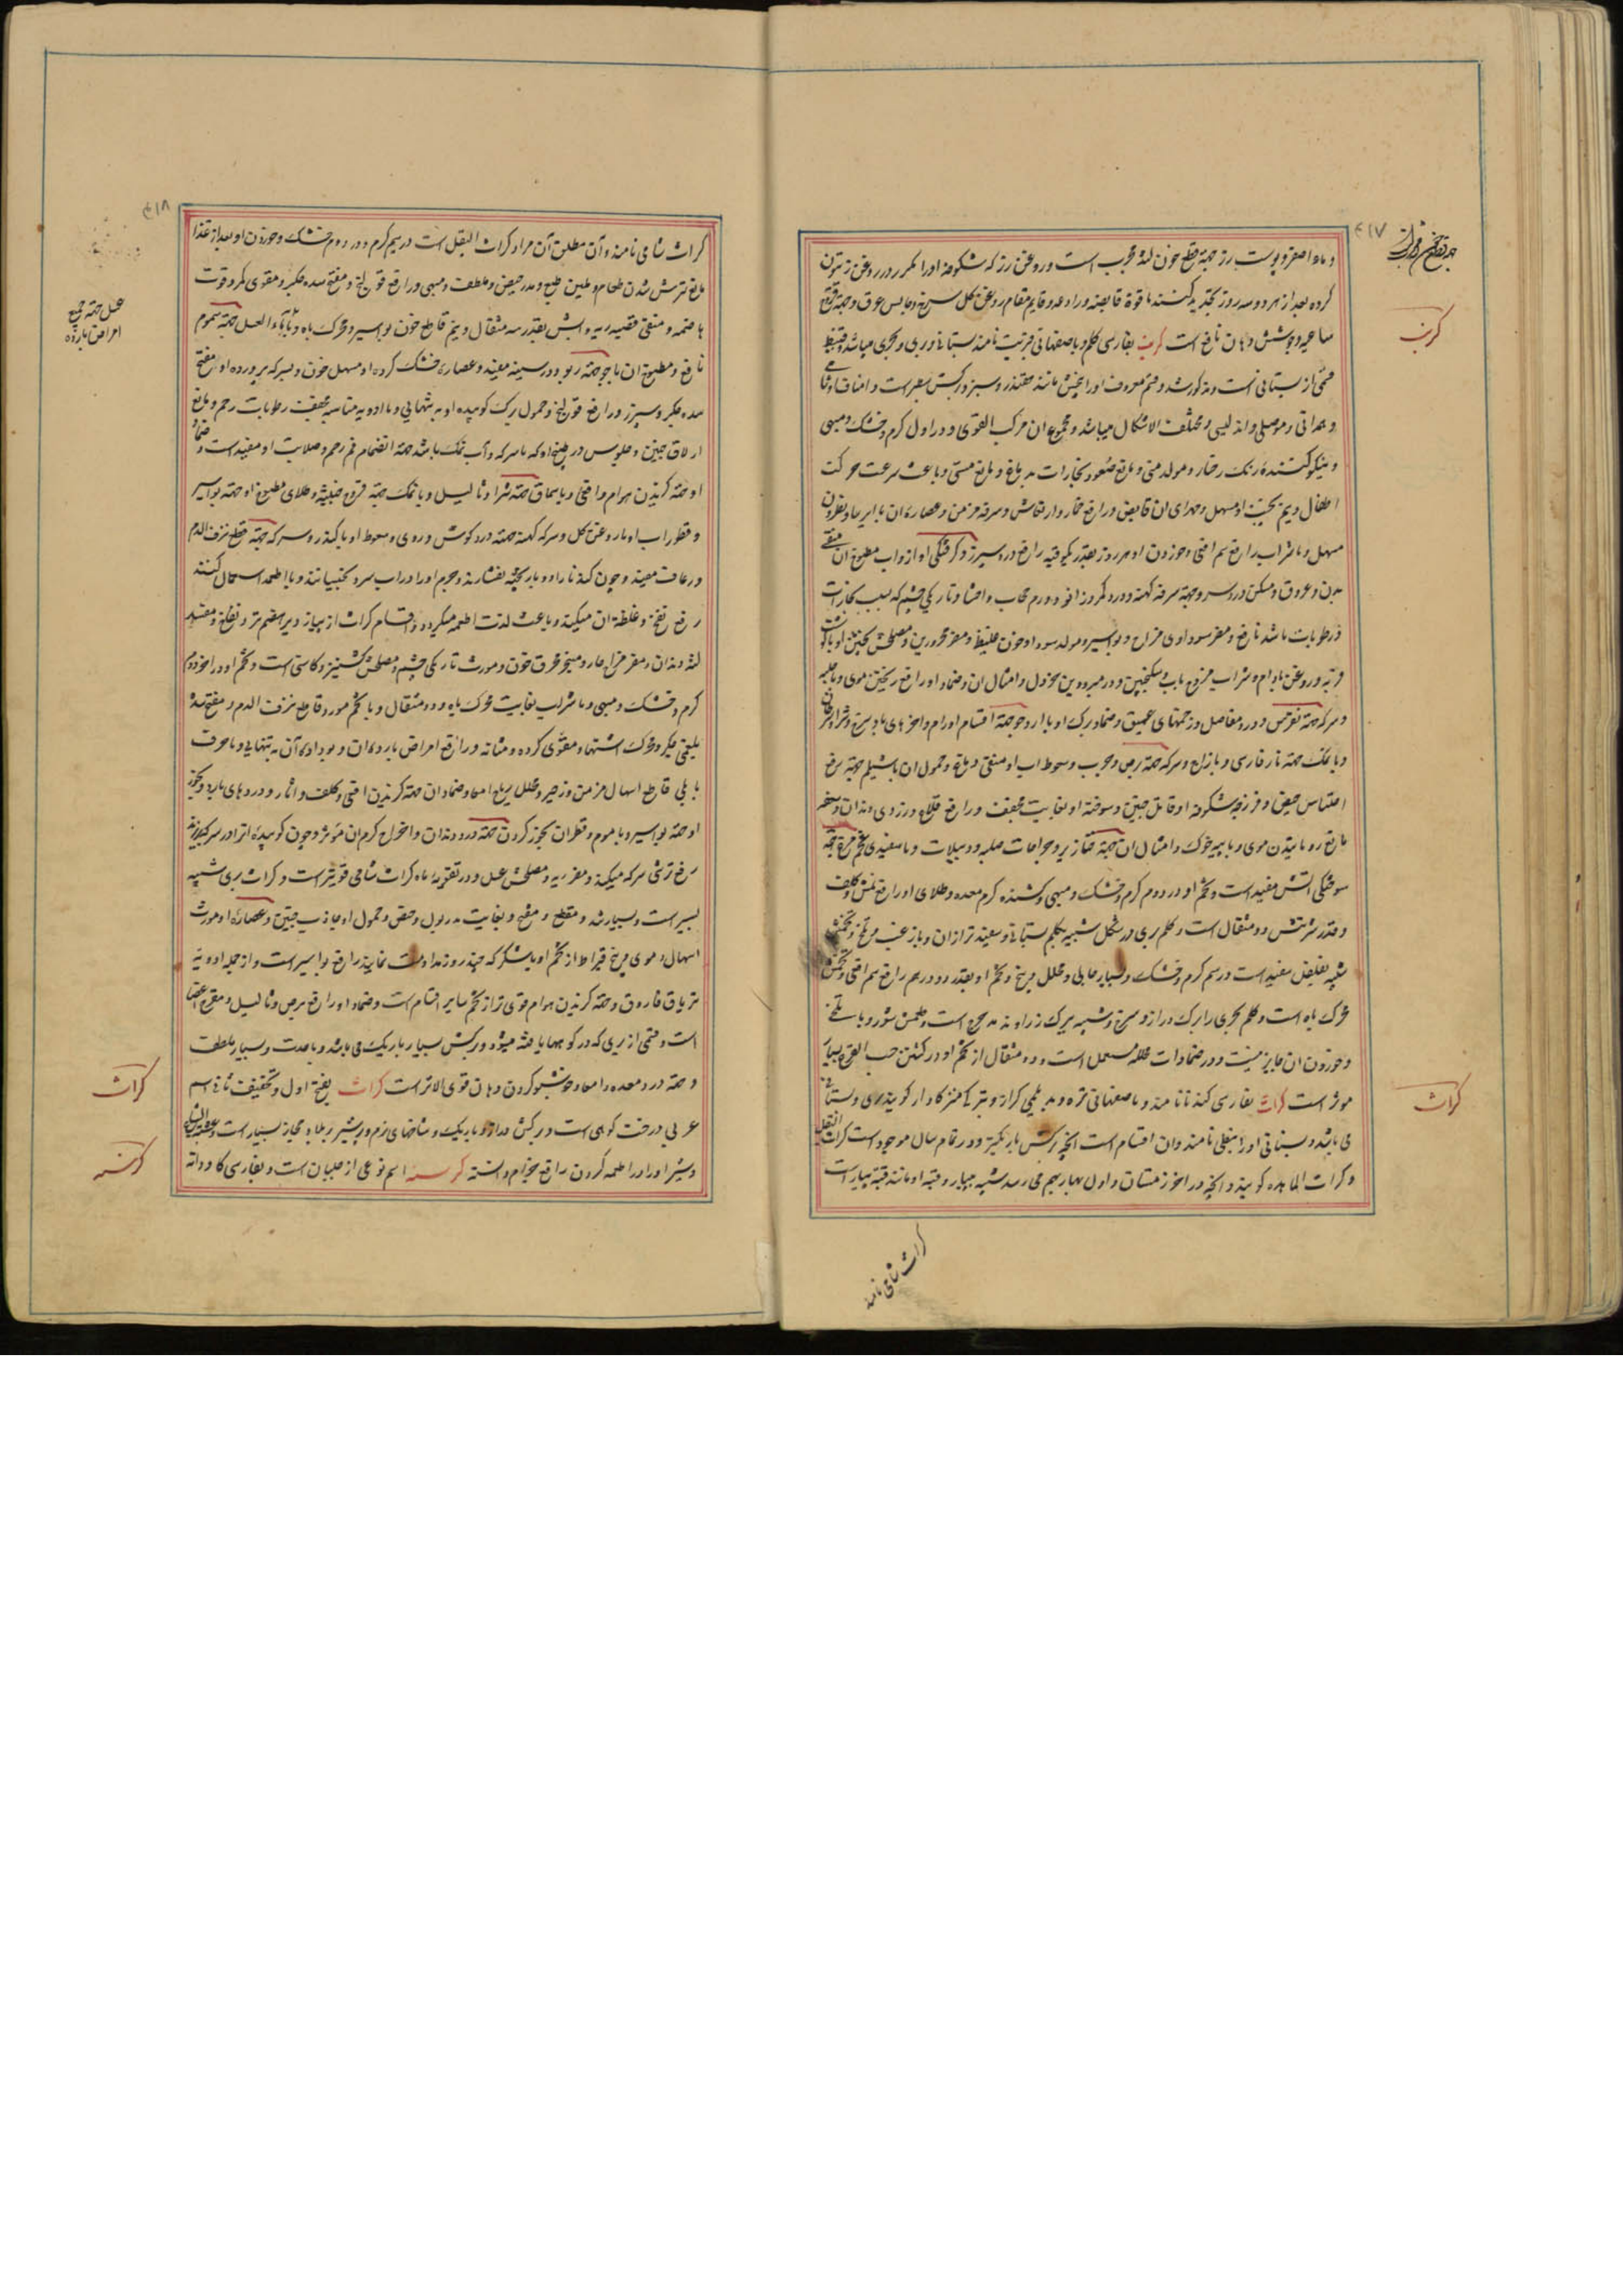 ٤١٧
کرنب
کراث
و ماده اصفر و پوست رز جهة قطع خون لثه مجرب است و روغن رز که شکوفه او را مکرر در روغن زیتون
کرده بعد از هر دو سه روز تجدید کنند با قوة قابضه و رادعه و قایم مقام روغن گل سرخ و حابس عرق و جهة قروح
ساعیه و جوشش دهان نافع است کرنب بفارسی کلم و باصفهانی قمریت نامند بستانی و بری و بحری میباشد و قنبیط
و نیکو کننده رنک رخسار و مولد منی و مانع صعود بخارات بدماغ و مانع مستی و باعث سرعت حرکت
اطفال و نیم پخت او مسهل و مهرای ان قابض و رافع خمار و ارتعاش و سرفه مزمن و عصاره ان با ایرسا و نطرون
مسهل و با شراب رافع سم افعی و خوردن او هر روز بقدر یکوقیه رافع درد سپرز و گرفتگی اواز و اب مطبوخ ان منقی
بدن و عروق و مسکن درد سر و جهة سرفه کهنه و درد کمر و زانو و ورم حجاب و احشا و تاریکی چشم که بسبب بخارات
و رطوبات باشد نافع و مضر سوداوی مزاج و بواسیر و مولد سودا و خون غلیظ و مضر محرورین و مصلحش پختن او با گوشت
فربه و روغن بادام و شراب ممزوج باب و سکنجبین و در مبرودین بخردل و امثال ان و ضماد او رافع ریختن موی و با حلبه
و سرکه جهة نقرس و درد مفاصل و زخمهای عمیق و ضماد برک او با ارد جو جهة اقسام اورام و اخزهای باد سرخ و شرا
و با نمک جهة نار فارسی و با زاج و سرکه جهة برص و جرب و سعوط اب او منقی دماغ و حمول ان با شیلم جهة رفع
احتباس حیض و فرزجه شکوفه او قاتل جنین و سوخته او بغایت مجفف و رافع قلاع و زردی دندان
مانع روییدن موی و با پیه خوک و امثال ان جهة خنازیر و جراحات صلبه و دبیلات و با سفیدی تخم مرغ جهة
سوختگی اتش مفید است و تخم او در دوم گرم و خشک و مبهی و کشنده کرم معده و طلای او رافع نمش و کلف
و قدر شربتش دو مثقال است و کلم بری در شکل شبیه بکلم بستانی و سفیدتر از ان و با زغب و تلخ و تخمش
شبیه بفلفل سفید است در سیم گرم و خشک و بسیار جالی و محلل ریح و تخم او بقدر دو درهم رافع سم افعی و تخمش
محرک باه است و کلم بحری را برک دراز و سرخ و شبیه ببرک زراوند مدحرج است و طعمش شور و با تلخی
و خوردن ان جایز نیست و در ضمادات محلله مستعمل است و ده مثقال از تخم او در کشتن حب القرع بسیار
موثر است کراث بفارسی کندنا نامند و باصفهانی تره و بدیلمی کراز و بترکی کنز کاوار گویند بری و بستانی
می باشد و بستانی او را نبطی نامند و ان اقسام است انچه برکش باریکتر و در تمام سال موجود است کراث البقل
و کراث المایده گویند و انچه در اخر زمستان و اول بهار بهم می رسد شبیه به پیاز و قبه او مانند قبه پیاز است
کراث شامی نامند
٤١٨
عسل جهة جمیع
امراض بارده
کراث
کرسنه
کراث شامی نامند و آن مطلق آن مراد کراث البقل است در سیم گرم و در دوم خشک و خوردن او بعد از غذا
مانع ترش شدن طعام و ملین طبع و مدر حیض و ملطف و مبهی و رافع قولنج و مفتح سده جگر و مقوی کمر و قوت
هاضمه و منقی قصبه ریه و آبش بقدر سه مثقال و نیم قاطع خون بواسیر و محرک باه و با ماء العسل جهة سموم
نافع و مطبوخ ان با جو جهة ربو و درد سینه مفید و عصاره خشک کرده او مسهل خون و بسرکه پرورده او مفتح
سده جگر و سپرز و رافع قولنج و حمول برک کوبیده او به تنهایی و با ادویه مناسبه مجفف رطوبات رحم و مانع
ازلاق جنین و جلوس در طبیخ او که با سرکه و آب نمک باشد جهة انضمام فم رحم و صلابت او مفید است و ضماد
او جهة گزیدن هوام و افعی و با سماق جهة شرا و ثالیل و با نمک جهة قروح خبیثه و طلای مطبوخ او جهة بواسیر
و قطور اب او با روغن گل و سرکه کهنه جهة درد گوش و دوی و سعوط او با کندر و سرکه جهة قطع نزف الدم
و رعاف مفید و چون کندنا را دو بار پخته بفشارند و جرم او را در اب سرد بخیسانند و با اطعمه استعمال کنند
رفع نفخ و غلظة ان میکند و باعث لذت اطعمه میگردد و اقسام کراث از پیاز دیر هضم تر و نفاخ و مفسد
لثه و دندان و مضر مزاج حار و مبخر و محرق خون و مورث تاریکی چشم و مصلحش کشنیز و کاسنی است و تخم او در اخر دوم
گرم و خشک و مبهی و با شراب بغایت محرک باه و دو مثقال او با تخم مورد قاطع نزف الدم و مفتح سده
بلغمی جگر و محرک اشتها و مقوی گرده و مثانه و رافع امراض بارده ان و بو داده آن به تنهایی و با حرف
بابلی قاطع اسهال مزمن و زحیر و محلل ریاح امعا و ضماد ان جهة گزیدن افعی و کلف و اثار و دردهای بارد و بخور
او جهة بواسیر و با موم و قطران بخور کردن جهة درد دندان و اخراج کرم ان موثر و چون کوبیده انرا در سرکه ریزند
رفع ترشی سرکه میکند و مضر ریه و مصلحش عسل و در تقویه باه کراث شامی قویتر است و کراث بری شبیه
بسیر است و بسیار تند و مقطع و مفتح و بغایت مدر بول و حیض و حمول او جاذب جنین و عصاره او مورث
اسهال دموی و پنج قیراط از تخم او با شکر که چند روز مداومت نمایند رافع بواسیر است و از جمله ادویه
تریاق فاروق و جهة گزیدن هوام قوی تر از تخم سایر اقسام است و ضماد او رافع برص و ثالیل و مقرح اعضا
است و قسمی از بری که در کوهها یافته میشود و برکش بسیار باریک می باشد و با حدت و بسیار ملطف
و جهة درد معده و امعا و خوشبو کردن دهان قوی الاثر است کراث بفتح اول و تخفیف ثانی اسم
عربی درخت کوهی است و برکش دراز و باریک و شاخهای نرم و پر شیر و بلاد حجاز بسیار است
و شیر او را در اطعمه کردن رافع جذام دانسته کرسنه اسم نوعی از جلبان است و بفارسی کاودانه